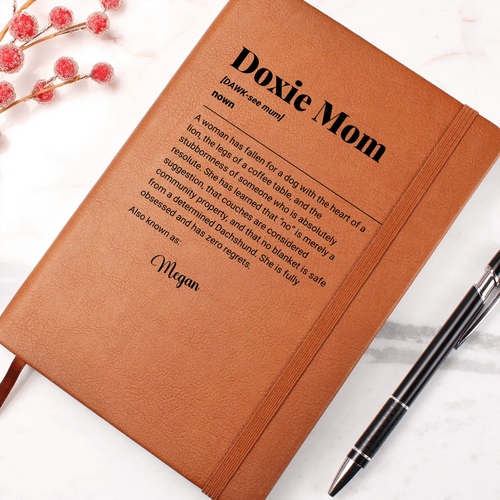 Doxie Mom
[DAWK-see mum]
noun
A woman has fallen for a dog with the heart of a
lion, the legs of a coffee table, and the
stubbornness of someone who is absolutely
resolute. She has learned that "no" is merely a
suggestion, that couches are considered
community property, and that no blanket is safe
from a determined Dachshund. She is fully
obsessed and has zero regrets.
Also known as:
Megan